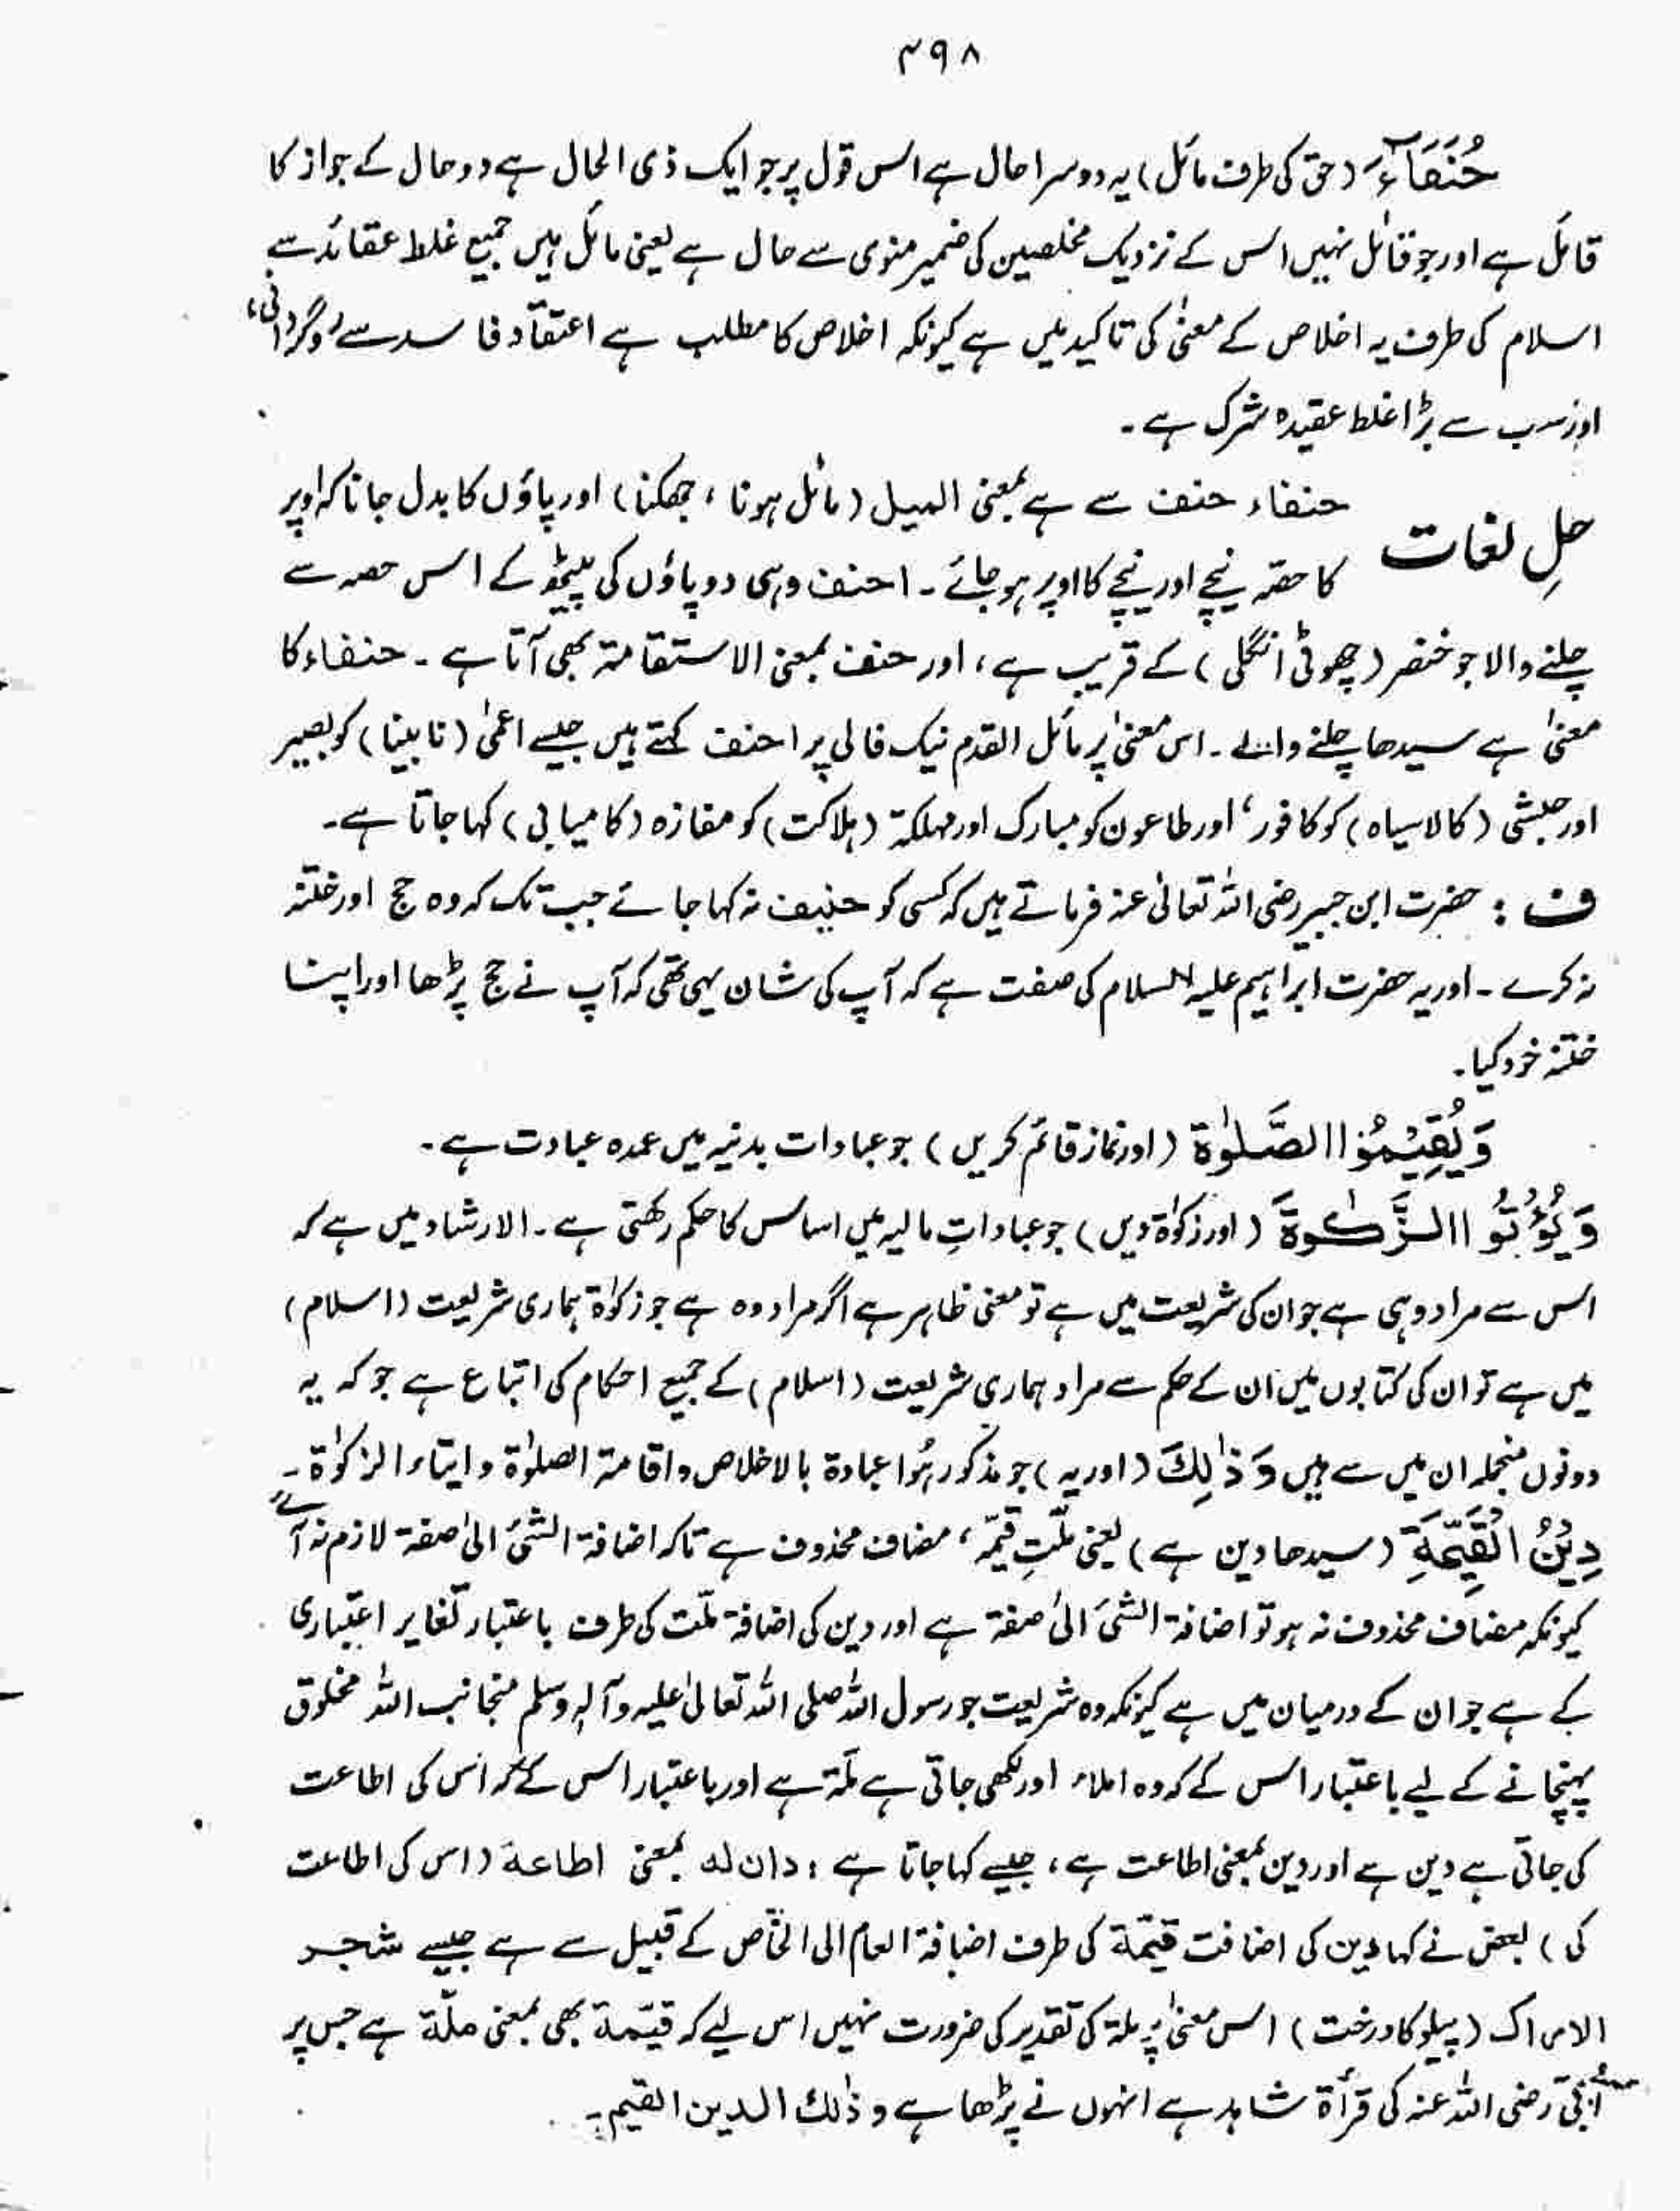 ۳۹۸
حُنَفَآءَ (حق کی طرف مائل) یہ دوسرا حال ہے اس قول پر جو ایک ذی الحال ہے دو حال کے جواز کا
قائل ہے اور جو قائل نہیں اس کے نزدیک مخلصین کی ضمیر منوی سے حال ہے یعنی مائل ہیں جمیع غلط عقائد سے
اسلام کی طرف یہ اخلاص کے معنیٰ کی تاکید میں ہے کیونکہ اخلاص کا مطلب ہے اعتقاد فاسد سے روگردانی،
اور سب سے بڑا غلط عقیدہ شرک ہے۔
حلِ لغات حنفاء حنف سے ہے بمعنی المیل (مائل ہونا، جھکنا) اور پاؤں کا بدل جانا کہ اوپر
کا حصہ نیچے اور نیچے کا اوپر ہو جائے۔ احنف وہی دو پاؤں کی پیٹھ کے اس حصہ سے
چلنے والا جو خنصر (چھوٹی انگلی) کے قریب ہے، اور حنف بمعنی الاستقامۃ بھی آتا ہے۔ حنفاء کا
معنیٰ ہے سیدھا چلنے والے۔ اس معنیٰ پر مائل القدم نیک فالی پر احنف کہتے ہیں جیسے اعمیٰ (نابینا) کو بصیر
اور حبشی (کالا سیاہ) کو کافور، اور طاعون کو مبارک اور مہلکۃ (ہلاکت) کو مفازہ (کامیابی) کہا جاتا ہے۔
ف : حضرت ابن جبیر رضی اللہ تعالیٰ عنہ فرماتے ہیں کہ کسی کو حنیف نہ کہا جائے جب تک کہ وہ حج اور ختنہ
نہ کرے۔ اور یہ حضرت ابراہیم علیہ السلام کی صفت ہے کہ آپ کی شان یہی تھی کہ آپ نے حج پڑھا اور اپنا
ختنہ خود کیا۔
وَيُقِيْمُوا الصَّلٰوةَ (اور نماز قائم کریں) جو عبادات بدنیہ میں عمدہ عبادت ہے۔
وَيُؤْتُوا الزَّكٰوةَ (اور زکوٰۃ دیں) جو عباداتِ مالیہ میں اساس کا حکم رکھتی ہے۔ الارشاد میں ہے کہ
اس سے مراد وہی ہے جو ان کی شریعت میں ہے تو معنی ظاہر ہے اگر مراد وہ ہے جو زکوٰۃ ہماری شریعت (اسلام)
میں ہے تو ان کی کتابوں میں ان کے حکم سے مراد ہماری شریعت (اسلام) کے جمیع احکام کی اتباع ہے جو کہ یہ
دونوں منجملہ ان میں سے ہیں وَ ذٰلِكَ (اور یہ) جو مذکور ہُوا عبادۃ بالاخلاص و اقامۃ الصلوٰۃ و ایتاء الزکوٰۃ۔
دِيْنُ الْقَيِّمَةِ (سیدھا دین ہے) یعنی ملّتِ قیّمہ، مضاف محذوف ہے تاکہ اضافۃ الشئ الیٰ صفۃ لازم نہ آئے
کیونکہ مضاف محذوف نہ ہو تو اضافۃ الشئ الیٰ صفۃ ہے اور دین کی اضافۃ ملّت کی طرف باعتبار تغایر اعتباری
کے ہے جو ان کے درمیان میں ہے کیونکہ وہ شریعت جو رسول اللہ صلی اللہ تعالیٰ علیہ وآلہٖ وسلم منجانب اللہ مخلوق
پہنچانے کے لیے باعتبار اس کے کہ وہ املاء اور لکھی جاتی ہے ملّۃ ہے اور باعتبار اس کے کہ اس کی اطاعت
کی جاتی ہے دین ہے اور دین بمعنی اطاعت ہے، جیسے کہا جاتا ہے : دان له بمعنی اطاعة (اس کی اطاعت
کی) بعض نے کہا دین کی اضافت قیّمۃ کی طرف اضافۃ العام الی الخاص کے قبیل سے ہے جیسے شجر
الاراک (پیلو کا درخت) اس معنیٰ پر ملۃ کی تقدیر کی ضرورت نہیں اس لیے کہ قیّمۃ بھی بمعنی ملّۃ ہے جس پر
اُبَیّ رضی اللہ عنہ کی قرأۃ شاہد ہے انہوں نے پڑھا ہے و ذٰلك الدین القیم۔